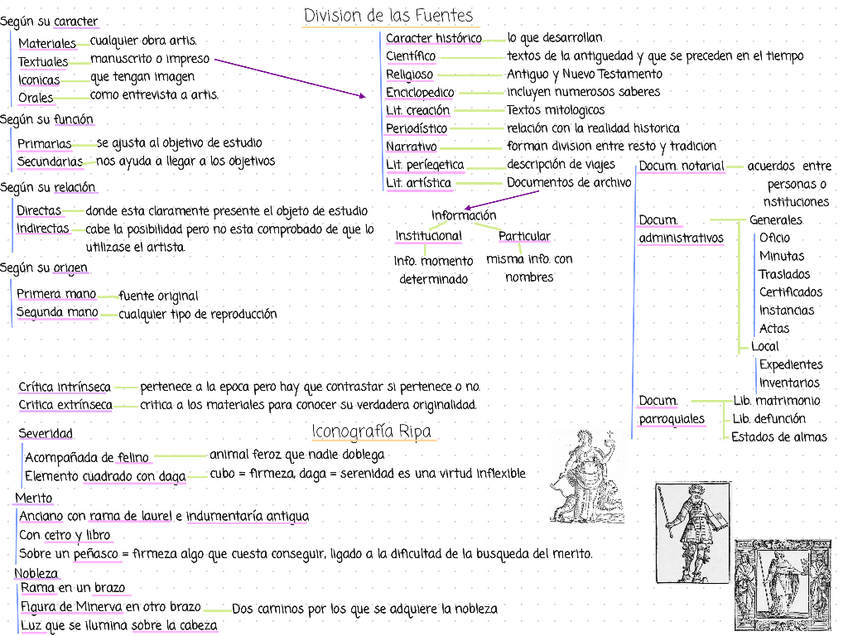 Division de las Fuentes
Según su caracter
Materiales cualquier obra artis.
Textuales manuscrito o impreso
Iconicas que tengan imagen
Orales como entrevista a artis.
Según su función
Primarias se ajusta al objetivo de estudio
Secundarias nos ayuda a llegar a los objetivos
Según su relación
Directas donde esta claramente presente el objeto de estudio
Indirectas cabe la posibilidad pero no esta comprobado de que lo
utilizase el artista.
Según su origen
Primera mano fuente original
Segunda mano cualquier tipo de reproducción
Caracter histórico lo que desarrollan
Científico textos de la antiguedad y que se preceden en el tiempo
Religioso Antiguo y Nuevo Testamento
Enciclopedico incluyen numerosos saberes
Lit. creación Textos mitologicos
Periodístico relación con la realidad historica
Narrativo forman division entre resto y tradicion
Lit. períegetica descripción de viajes
Lit. artística Documentos de archivo
Información
Institucional Particular
Info. momento
determinado
misma info. con
nombres
Docum. notarial acuerdos entre
personas o
nstituciones
Docum.
administrativos
Generales
Oficio
Minutas
Traslados
Certificados
Instancias
Actas
Local
Expedientes
Inventarios
Docum.
parroquiales
Lib. matrimonio
Lib. defunción
Estados de almas
Crítica intrínseca pertenece a la epoca pero hay que contrastar si pertenece o no.
Critica extrínseca critica a los materiales para conocer su verdadera originalidad.
Iconografía Ripa
Severidad
Acompañada de felino animal feroz que nadie doblega
Elemento cuadrado con daga cubo = firmeza, daga = serenidad es una virtud inflexible
Merito
Anciano con rama de laurel e indumentaría antigua
Con cetro y libro
Sobre un peñasco = firmeza algo que cuesta conseguir, ligado a la dificultad de la busqueda del merito.
Nobleza
Rama en un brazo
Figura de Minerva en otro brazo Dos caminos por los que se adquiere la nobleza
Luz que se ilumina sobre la cabeza